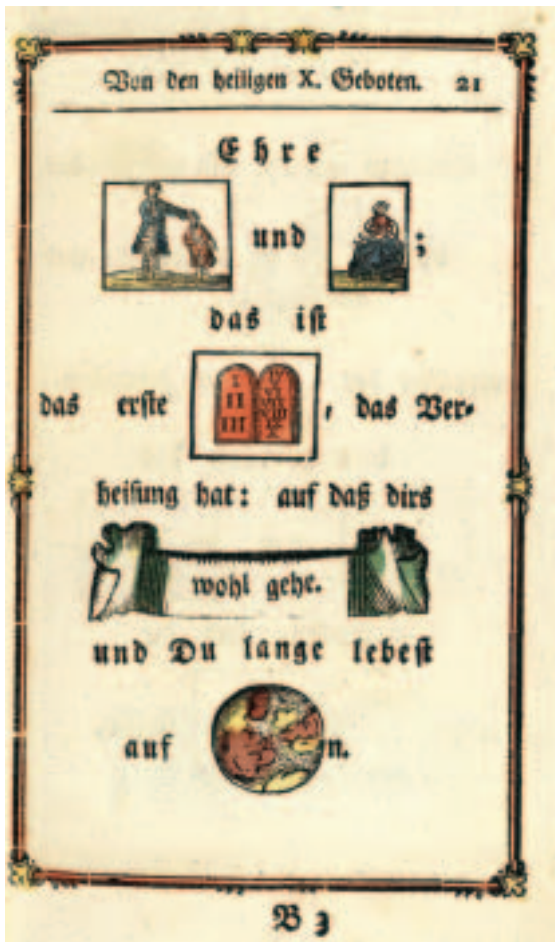 Von den heiligen X. Geboten. 21
Ehre
und ;
das ist
das erste I II III IV V VI VII VIII IX X , das Ver-
heisung hat: auf daß dirs
wohl gehe.
und Du lange lebest
auf n.
B 3